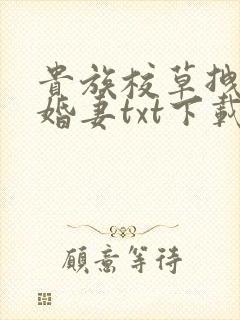 貴族校草拽
婚妻txt下載
願意等待